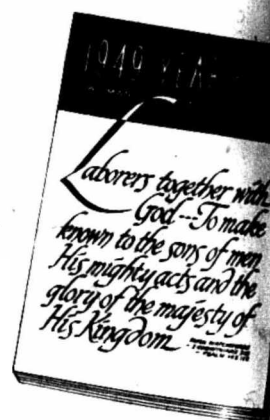 1949 YEAR
Laborers together with
God---To make
known to the sons of men
His mighty acts and the
glory of the majesty of
His Kingdom